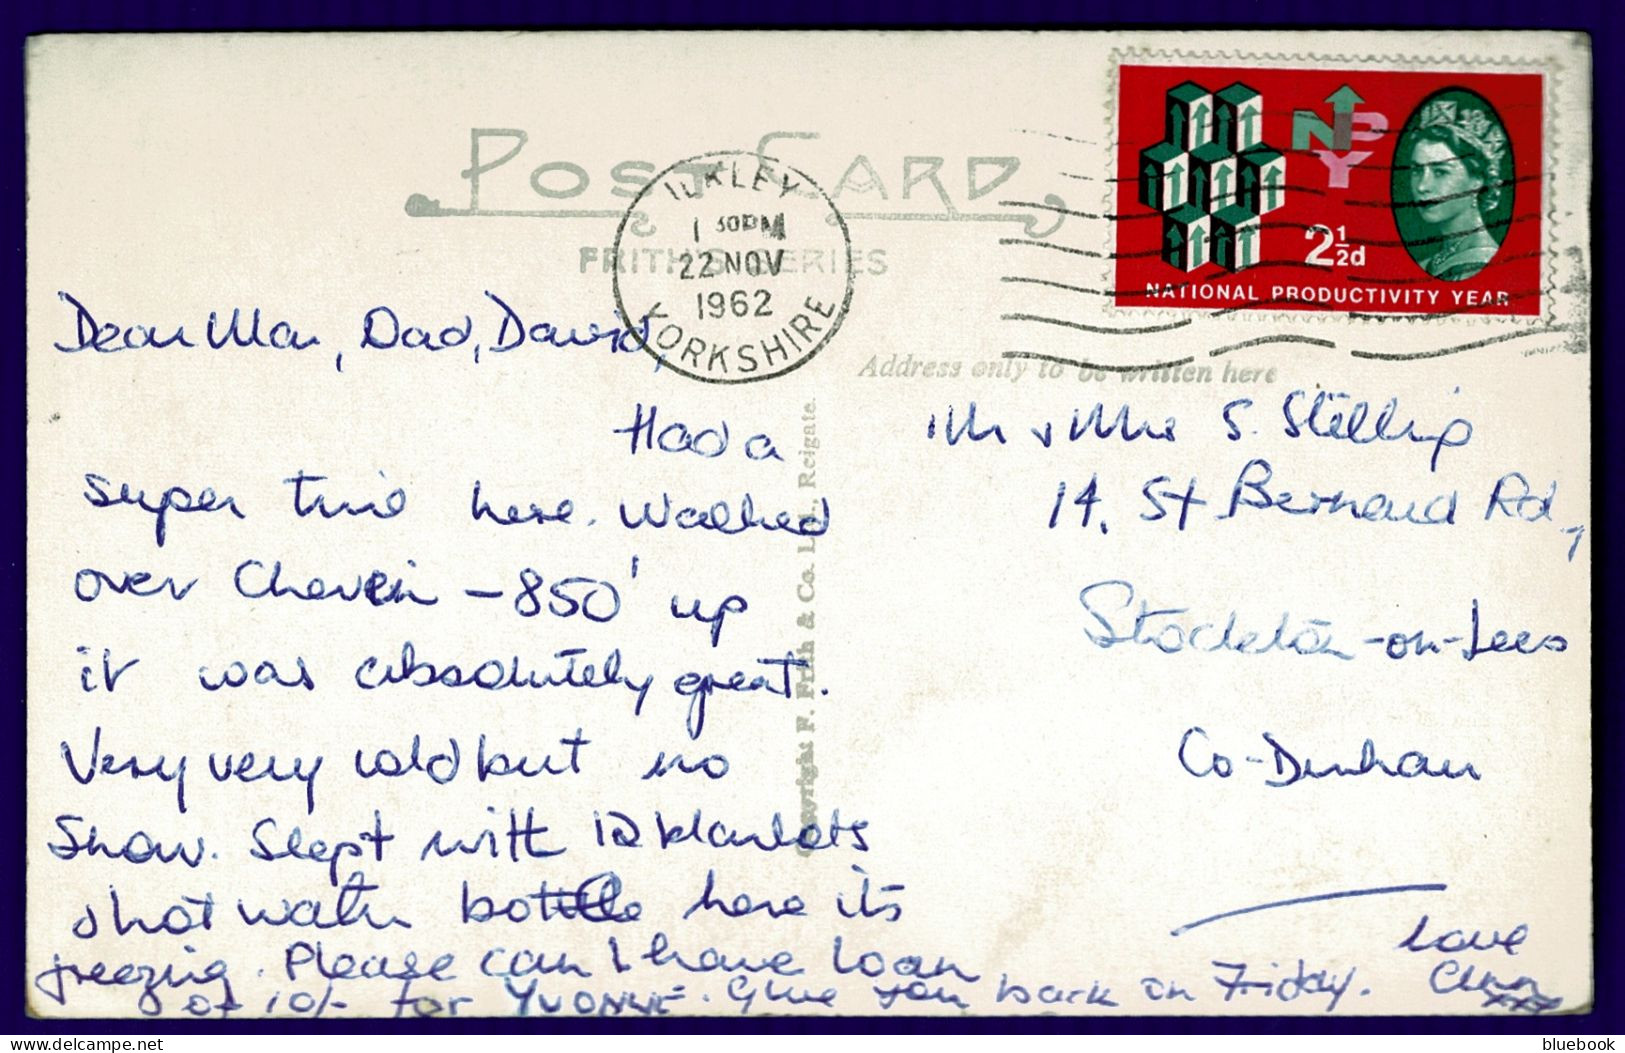 POST CARD
FRITH'S SERIES
ILKLEY
1 30PM
22 NOV
1962
YORKSHIRE
NPY
2½d
NATIONAL PRODUCTIVITY YEAR
Address only to be written here
Copyright F. Frith & Co. Ltd., Reigate.
Dear Mam, Dad, David,
Had a
super time here. Walked
over Chevin – 850' up
it was absolutely great.
Very very cold but no
snow. Slept with 12 blankets
& hot water bottle here its
freezing. Please can I have loan
of 10/- for YVONNE. Give you back on Friday.
Love
xxx
Mr & Mrs S. Stelling
14, St Bernard Rd,
Stockton-on-Tees
Co-Durham
bluebook